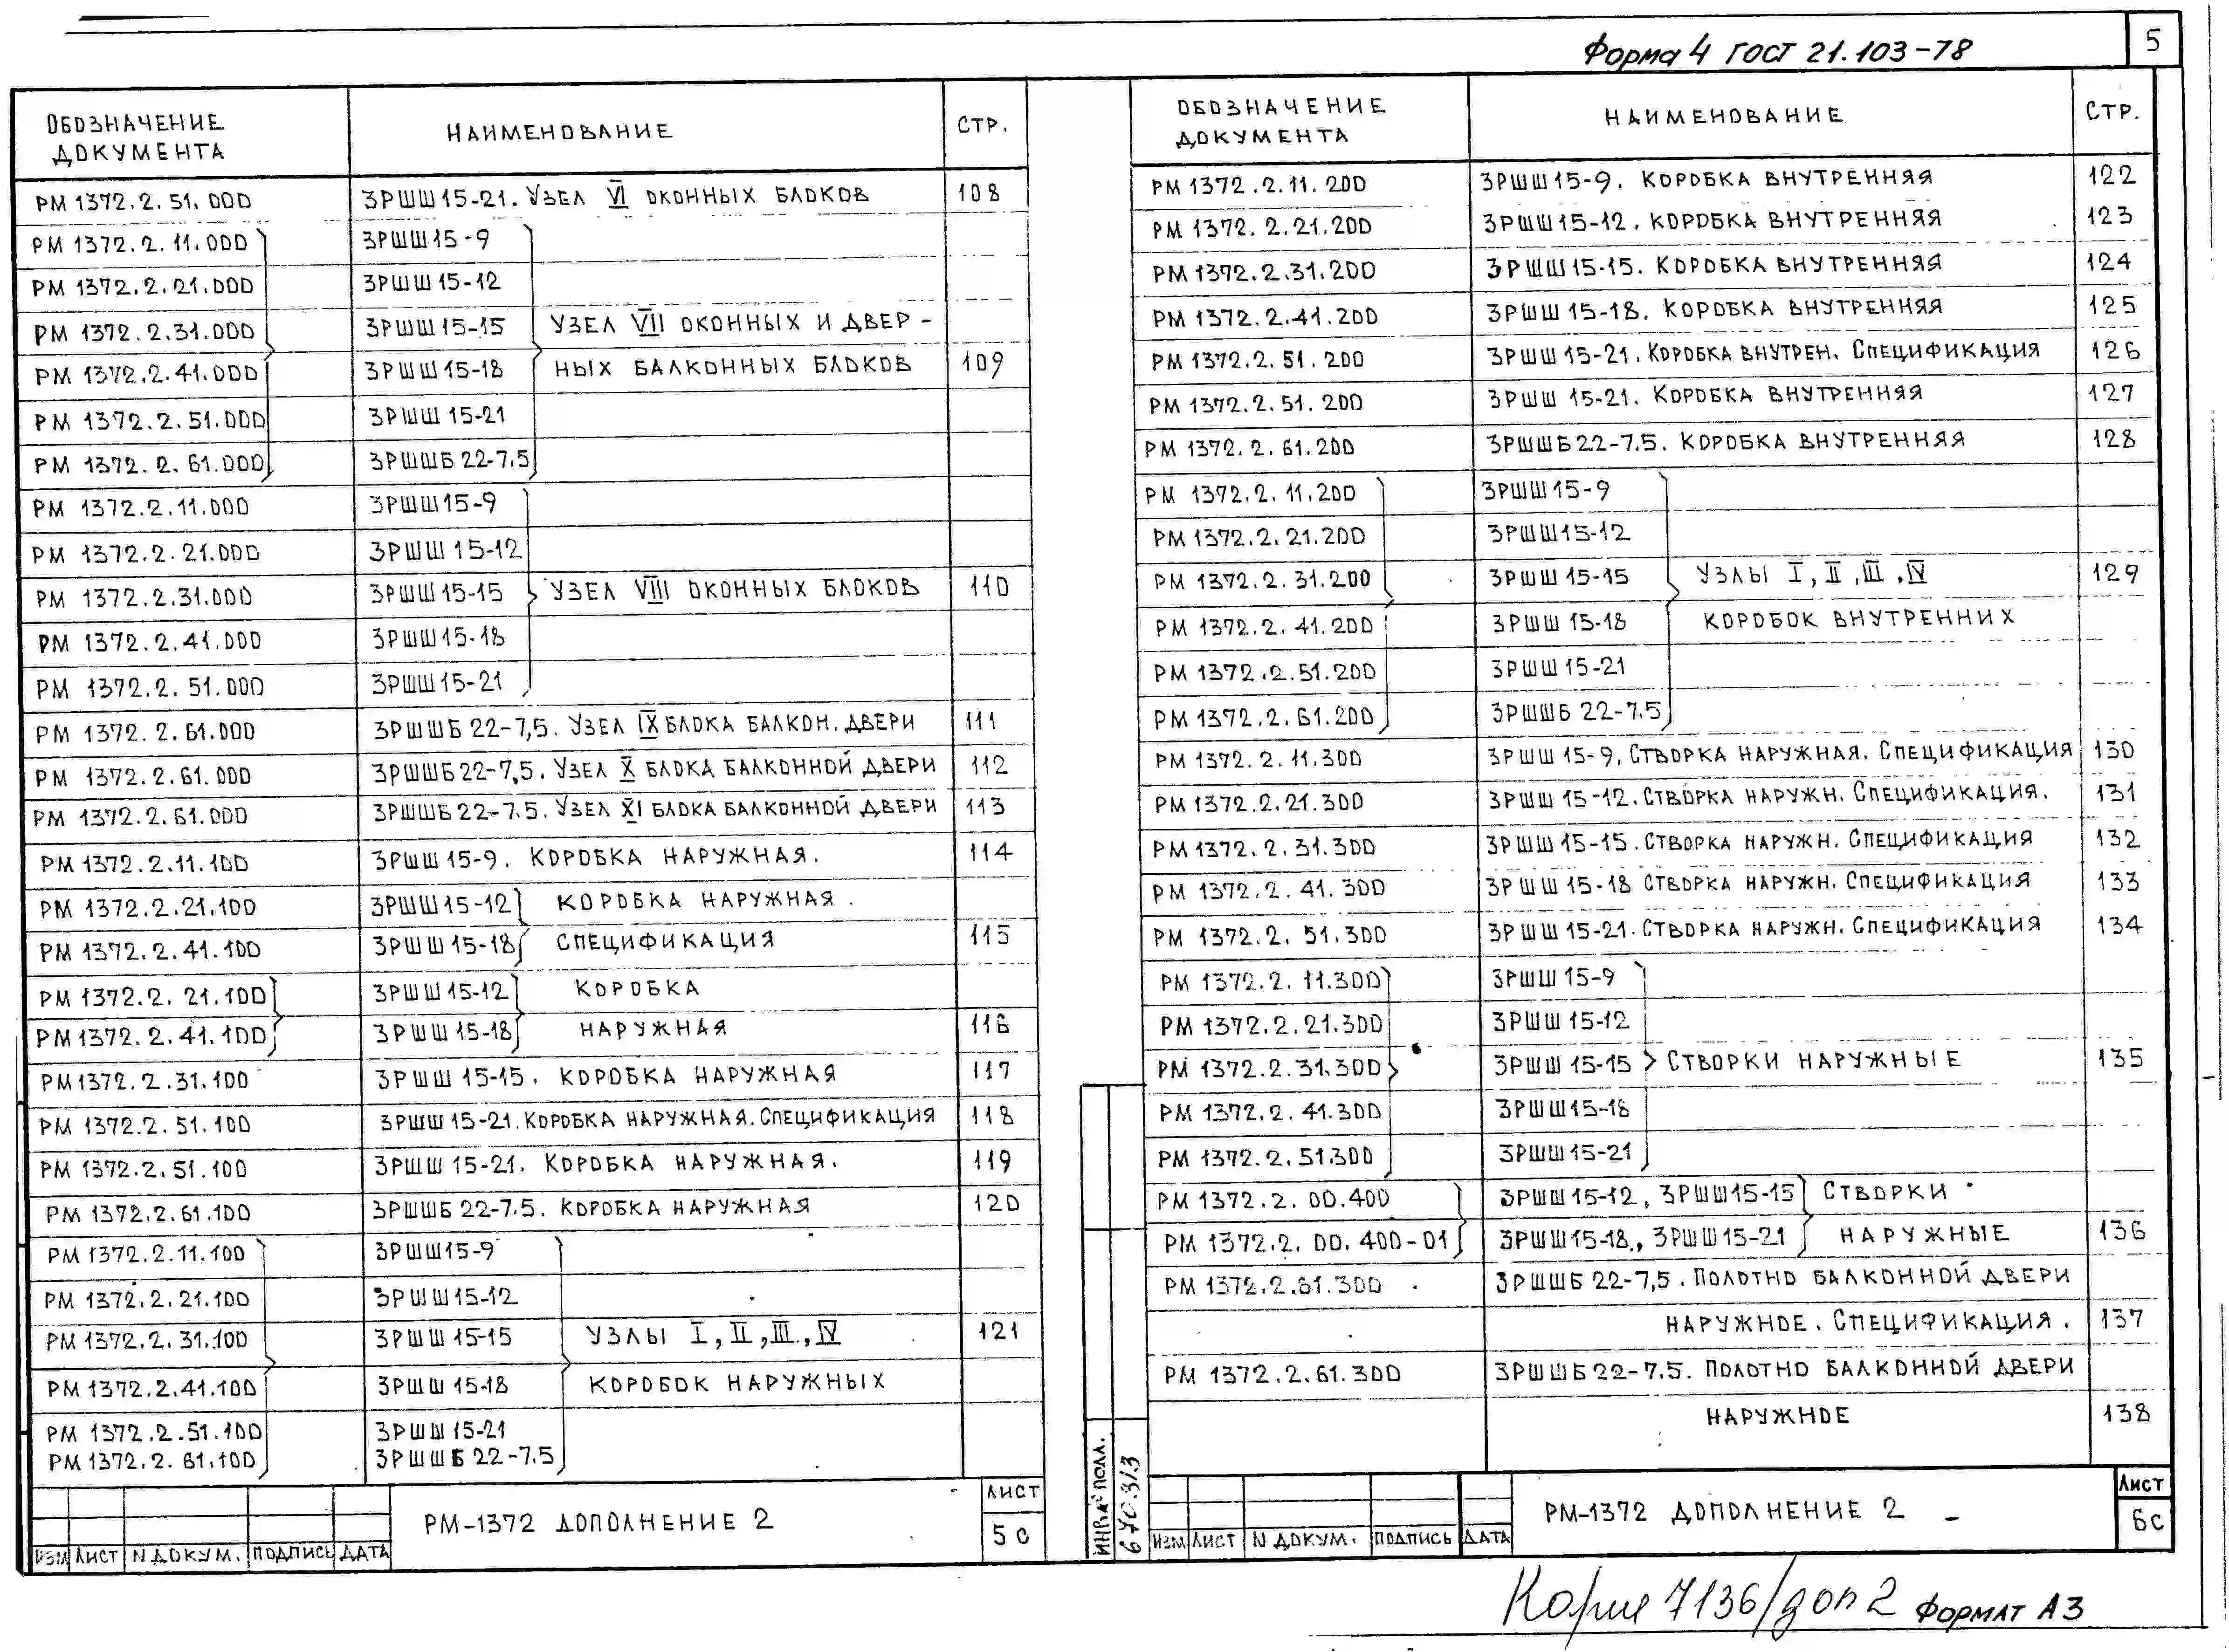 5
Форма 4 ГОСТ 21.103-78
ОБОЗНАЧЕНИЕ ДОКУМЕНТА НАИМЕНОВАНИЕ СТР.
РМ 1372.2.51.000 3РШШ15-21. УЗЕЛ VI ОКОННЫХ БЛОКОВ 108
РМ 1372.2.11.000 3РШШ15-9
РМ 1372.2.21.000 3РШШ15-12
РМ 1372.2.31.000 3РШШ15-15 УЗЕЛ VII ОКОННЫХ И ДВЕР-
РМ 1372.2.41.000 3РШШ15-18 НЫХ БАЛКОННЫХ БЛОКОВ 109
РМ 1372.2.51.000 3РШШ15-21
РМ 1372.2.61.000 3РШШБ22-7.5
РМ 1372.2.11.000 3РШШ15-9
РМ 1372.2.21.000 3РШШ15-12
РМ 1372.2.31.000 3РШШ15-15 УЗЕЛ VIII ОКОННЫХ БЛОКОВ 110
РМ 1372.2.41.000 3РШШ15-18
РМ 1372.2.51.000 3РШШ15-21
РМ 1372.2.61.000 3РШШБ22-7,5. УЗЕЛ IX БЛОКА БАЛКОН. ДВЕРИ 111
РМ 1372.2.61.000 3РШШБ22-7,5. УЗЕЛ X БЛОКА БАЛКОННОЙ ДВЕРИ 112
РМ 1372.2.61.000 3РШШБ22-7.5. УЗЕЛ XI БЛОКА БАЛКОННОЙ ДВЕРИ 113
РМ 1372.2.11.100 3РШШ15-9. КОРОБКА НАРУЖНАЯ. 114
РМ 1372.2.21.100 3РШШ15-12 КОРОБКА НАРУЖНАЯ.
РМ 1372.2.41.100 3РШШ15-18 СПЕЦИФИКАЦИЯ 115
РМ 1372.2.21.100 3РШШ15-12 КОРОБКА
РМ 1372.2.41.100 3РШШ15-18 НАРУЖНАЯ 116
РМ 1372.2.31.100 3РШШ15-15. КОРОБКА НАРУЖНАЯ 117
РМ 1372.2.51.100 3РШШ15-21. КОРОБКА НАРУЖНАЯ. СПЕЦИФИКАЦИЯ 118
РМ 1372.2.51.100 3РШШ15-21. КОРОБКА НАРУЖНАЯ. 119
РМ 1372.2.61.100 3РШШБ22-7.5. КОРОБКА НАРУЖНАЯ 120
РМ 1372.2.11.100 3РШШ15-9
РМ 1372.2.21.100 3РШШ15-12
РМ 1372.2.31.100 3РШШ15-15 УЗЛЫ I, II, III, IV 121
РМ 1372.2.41.100 3РШШ15-18 КОРОБОК НАРУЖНЫХ
РМ 1372.2.51.100 3РШШ15-21
РМ 1372.2.61.100 3РШШБ22-7.5
ИЗМ ЛИСТ N ДОКУМ. ПОДПИСЬ ДАТА
РМ-1372 ДОПОЛНЕНИЕ 2
ЛИСТ
5с
ОБОЗНАЧЕНИЕ ДОКУМЕНТА НАИМЕНОВАНИЕ СТР.
РМ 1372.2.11.200 3РШШ15-9. КОРОБКА ВНУТРЕННЯЯ 122
РМ 1372.2.21.200 3РШШ15-12. КОРОБКА ВНУТРЕННЯЯ 123
РМ 1372.2.31.200 3РШШ15-15. КОРОБКА ВНУТРЕННЯЯ 124
РМ 1372.2.41.200 3РШШ15-18. КОРОБКА ВНУТРЕННЯЯ 125
РМ 1372.2.51.200 3РШШ15-21. КОРОБКА ВНУТРЕН. СПЕЦИФИКАЦИЯ 126
РМ 1372.2.51.200 3РШШ15-21. КОРОБКА ВНУТРЕННЯЯ 127
РМ 1372.2.61.200 3РШШБ22-7.5. КОРОБКА ВНУТРЕННЯЯ 128
РМ 1372.2.11.200 3РШШ15-9
РМ 1372.2.21.200 3РШШ15-12
РМ 1372.2.31.200 3РШШ15-15 УЗЛЫ I, II, III, IV 129
РМ 1372.2.41.200 3РШШ15-18 КОРОБОК ВНУТРЕННИХ
РМ 1372.2.51.200 3РШШ15-21
РМ 1372.2.61.200 3РШШБ22-7.5
РМ 1372.2.11.300 3РШШ15-9. СТВОРКА НАРУЖНАЯ. СПЕЦИФИКАЦИЯ 130
РМ 1372.2.21.300 3РШШ15-12. СТВОРКА НАРУЖН. СПЕЦИФИКАЦИЯ. 131
РМ 1372.2.31.300 3РШШ15-15. СТВОРКА НАРУЖН. СПЕЦИФИКАЦИЯ 132
РМ 1372.2.41.300 3РШШ15-18 СТВОРКА НАРУЖН. СПЕЦИФИКАЦИЯ 133
РМ 1372.2.51.300 3РШШ15-21. СТВОРКА НАРУЖН. СПЕЦИФИКАЦИЯ 134
РМ 1372.2.11.300 3РШШ15-9
РМ 1372.2.21.300 3РШШ15-12
РМ 1372.2.31.300 3РШШ15-15 СТВОРКИ НАРУЖНЫЕ 135
РМ 1372.2.41.300 3РШШ15-18
РМ 1372.2.51.300 3РШШ15-21
РМ 1372.2.00.400 3РШШ15-12, 3РШШ15-15 СТВОРКИ
РМ 1372.2.00.400-01 3РШШ15-18, 3РШШ15-21 НАРУЖНЫЕ 136
РМ 1372.2.61.300 3РШШБ22-7,5. ПОЛОТНО БАЛКОННОЙ ДВЕРИ
НАРУЖНОЕ. СПЕЦИФИКАЦИЯ. 137
РМ 1372.2.61.300 3РШШБ22-7.5. ПОЛОТНО БАЛКОННОЙ ДВЕРИ
НАРУЖНОЕ 138
ИНВ.№ ПОДЛ.
ИЗМ ЛИСТ N ДОКУМ. ПОДПИСЬ ДАТА
РМ-1372 ДОПОЛНЕНИЕ 2
ЛИСТ
6с
7136/доп 2 ФОРМАТ А3